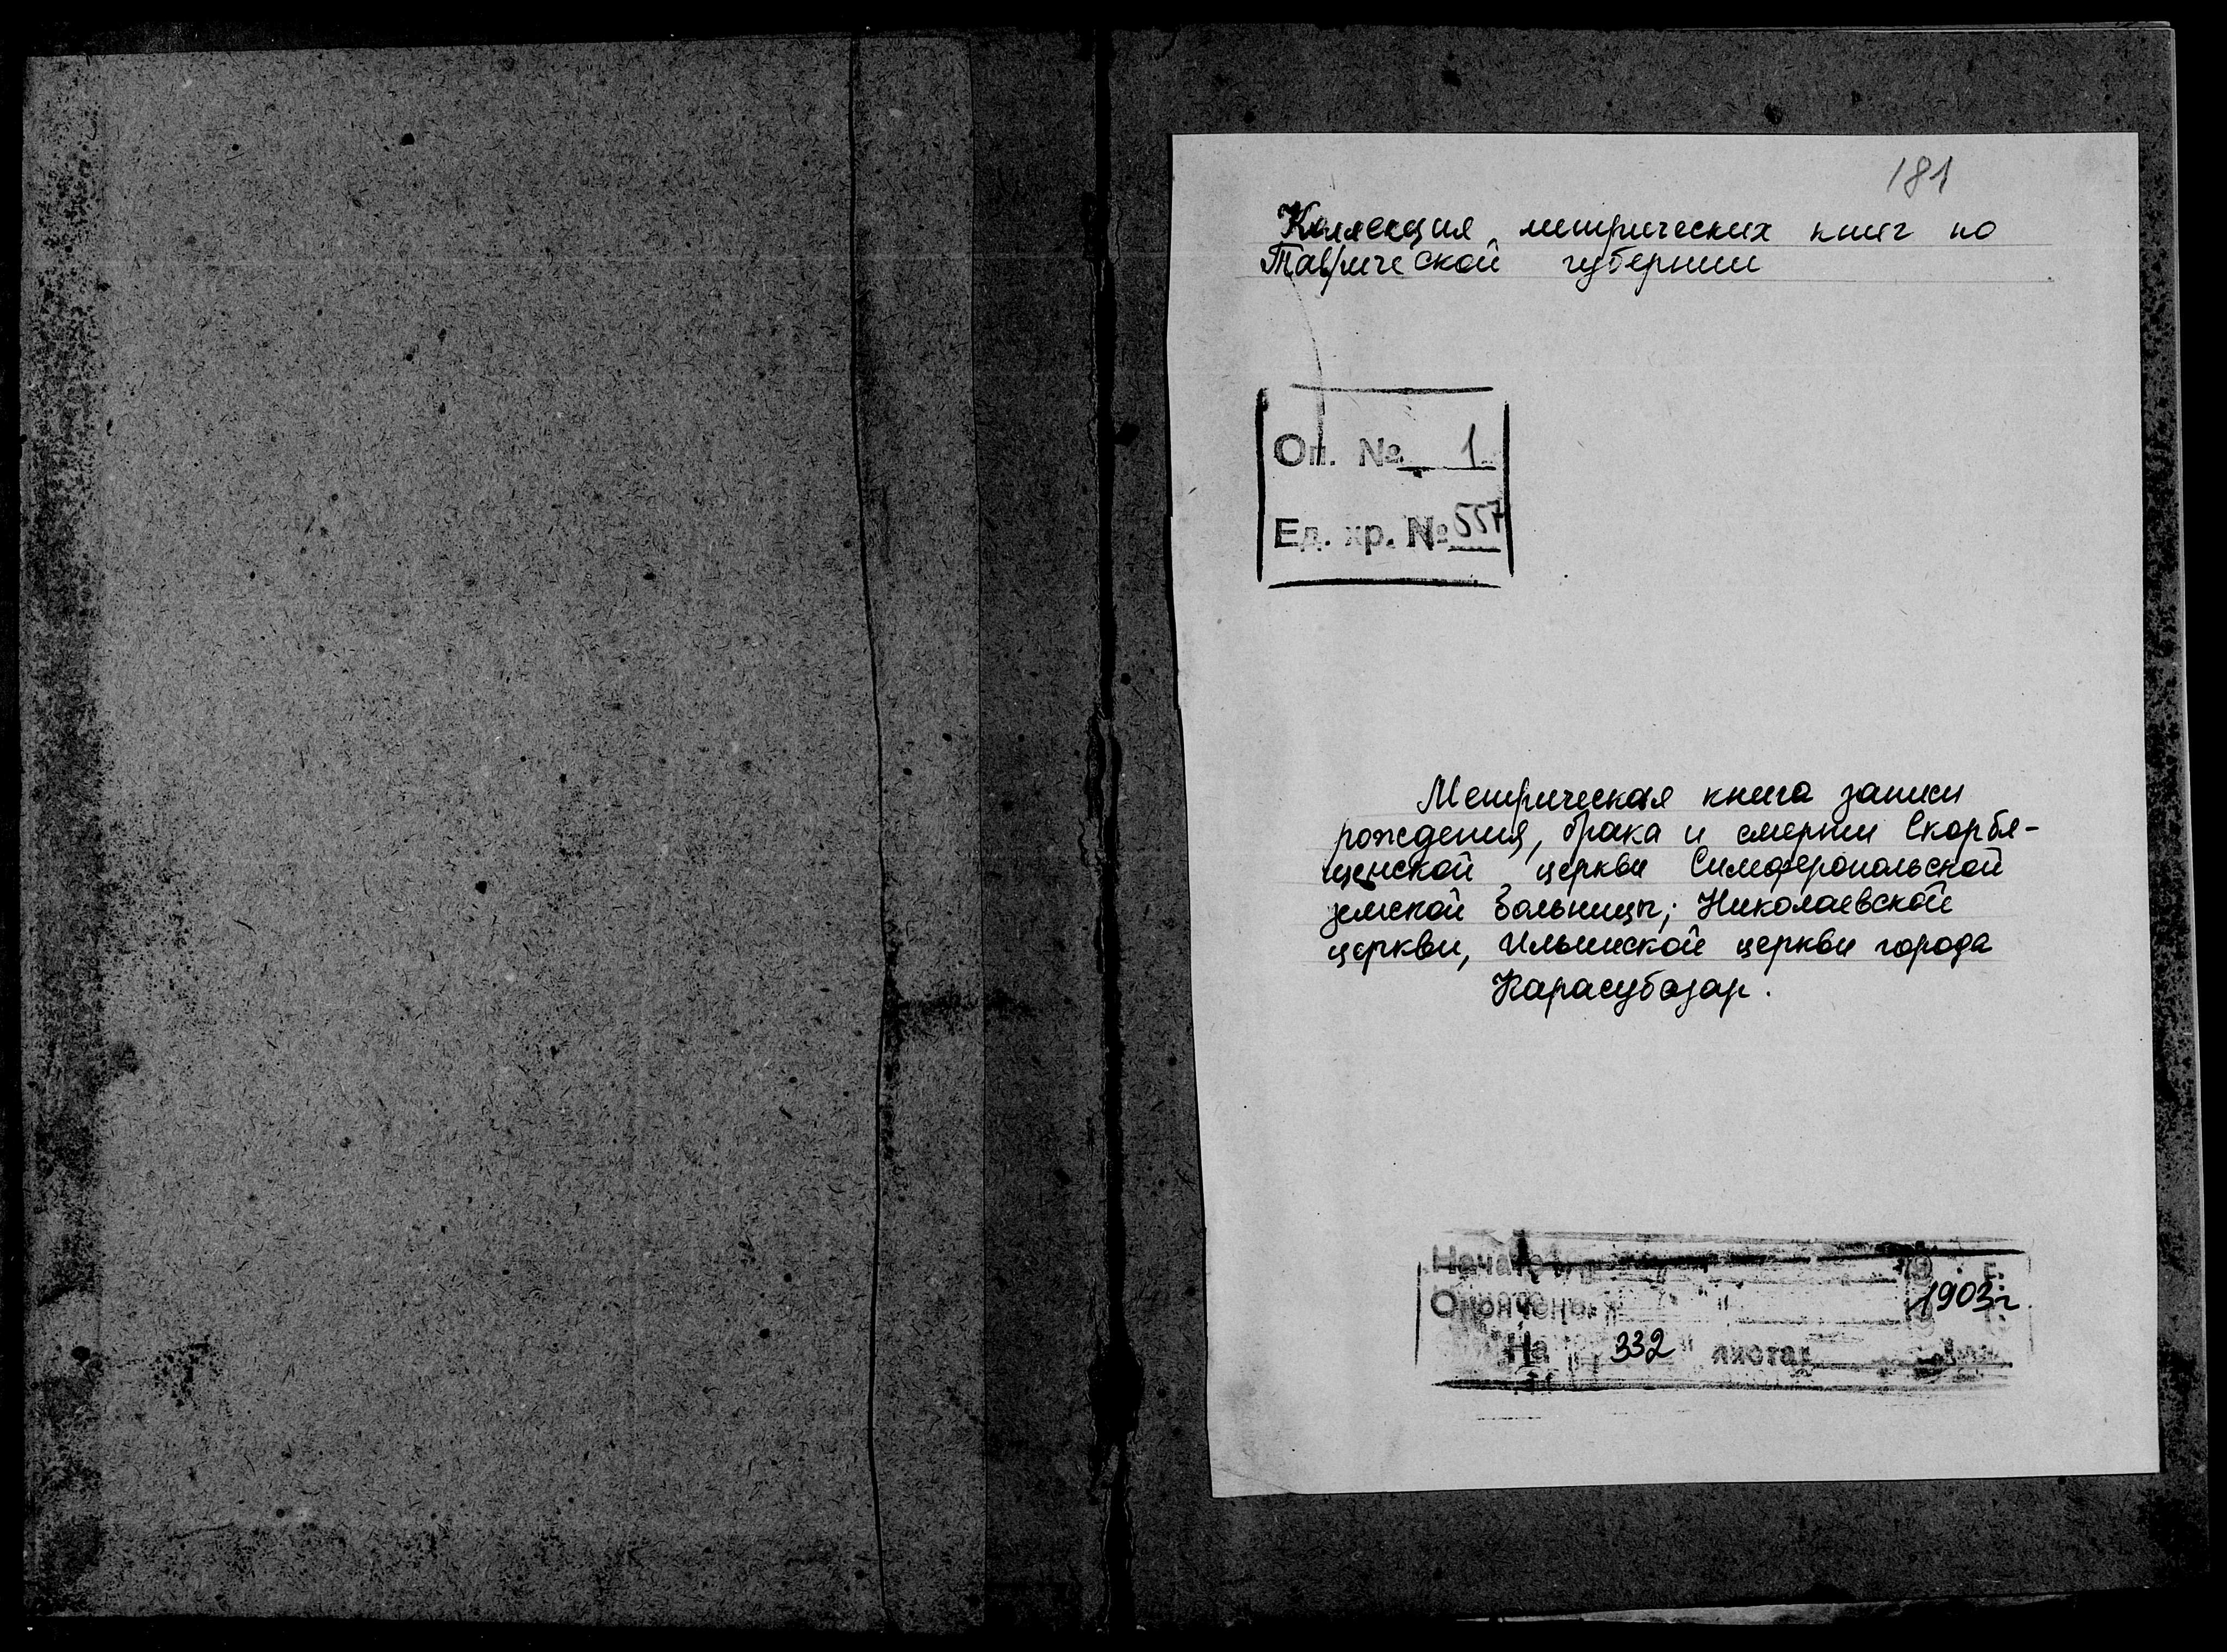 181
Коллекция метрических книг по
Таврической губернии
Оп. № 1
Ед. хр. № 557
Метрическая книга записи
рождения, брака и смерти Скорбя-
щенской церкви Симферопольской
земской больницы; Николаевской
церкви, Ильинской церкви города
Карасубазар.
Начато
Окончено 1903 г.
На 332 листах